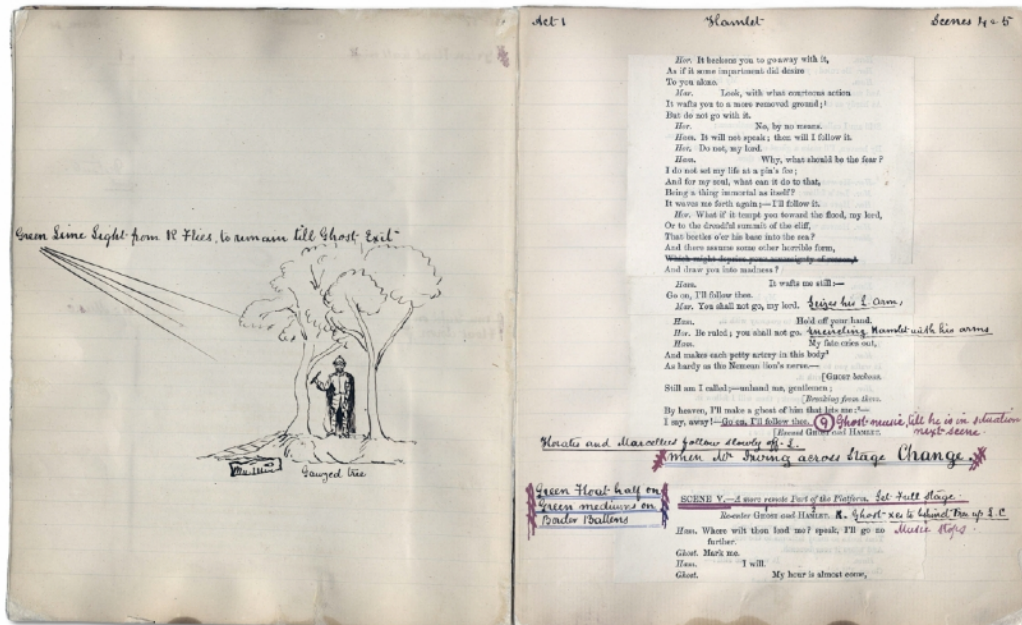 Green Lime Light from R Flies, to remain till Ghost Exit
Gauzed tree
Act 1 Hamlet Scenes 4 & 5
Hor. It beckons you to go away with it,
As if it some impartment did desire
To you alone.
Mar. Look, with what courteous action
It wafts you to a more removed ground;¹
But do not go with it.
Hor. No, by no means.
Ham. It will not speak; then will I follow it.
Hor. Do not, my lord.
Ham. Why, what should be the fear?
I do not set my life at a pin's fee;
And for my soul, what can it do to that,
Being a thing immortal as itself?
It waves me forth again;—I'll follow it.
Hor. What if it tempt you toward the flood, my lord,
Or to the dreadful summit of the cliff,
That beetles o'er his base into the sea?
And there assume some other horrible form,
Which might deprive your sovereignty of reason,
And draw you into madness?
Ham. It wafts me still:—
Go on, I'll follow thee.
Mar. You shall not go, my lord. Seizes his L arm,
Ham. Hold off your hand.
Hor. Be ruled; you shall not go. Hamlet with his arms
Ham. My fate cries out,
And makes each petty artery in this body²
As hardy as the Nemean lion's nerve.—
[GHOST beckons.
Still am I called;—unhand me, gentlemen;
[Breaking from them.
By heaven, I'll make a ghost of him that lets me:³—
I say, away!—Go on, I'll follow thee. 9 Ghost music, till he is in situation
next scene.
[Exeunt GHOST and HAMLET.
Horatio and Marcellus follow slowly off. L.
When Mr Irving across Stage Change.
Green Float half on
Green mediums on
Border Battens
SCENE V.—A more remote Part of the Platform. Set Full Stage.
Re-enter GHOST and HAMLET. R. Ghost xes to behind Tree up L.C
Ham. Where wilt thou lead me? speak, I'll go no Music stops.
further.
Ghost. Mark me.
Ham. I will.
Ghost. My hour is almost come,